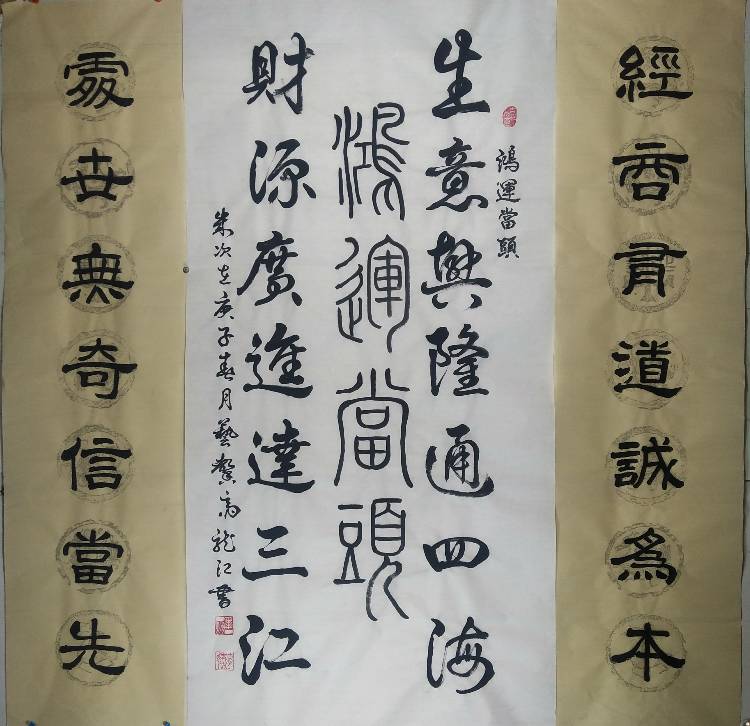 經商有道誠為本
鴻運當頭
生意興隆通四海
鴻運當頭
財源廣進達三江
次在庚子春月藝高龍江書
處世無奇信當先